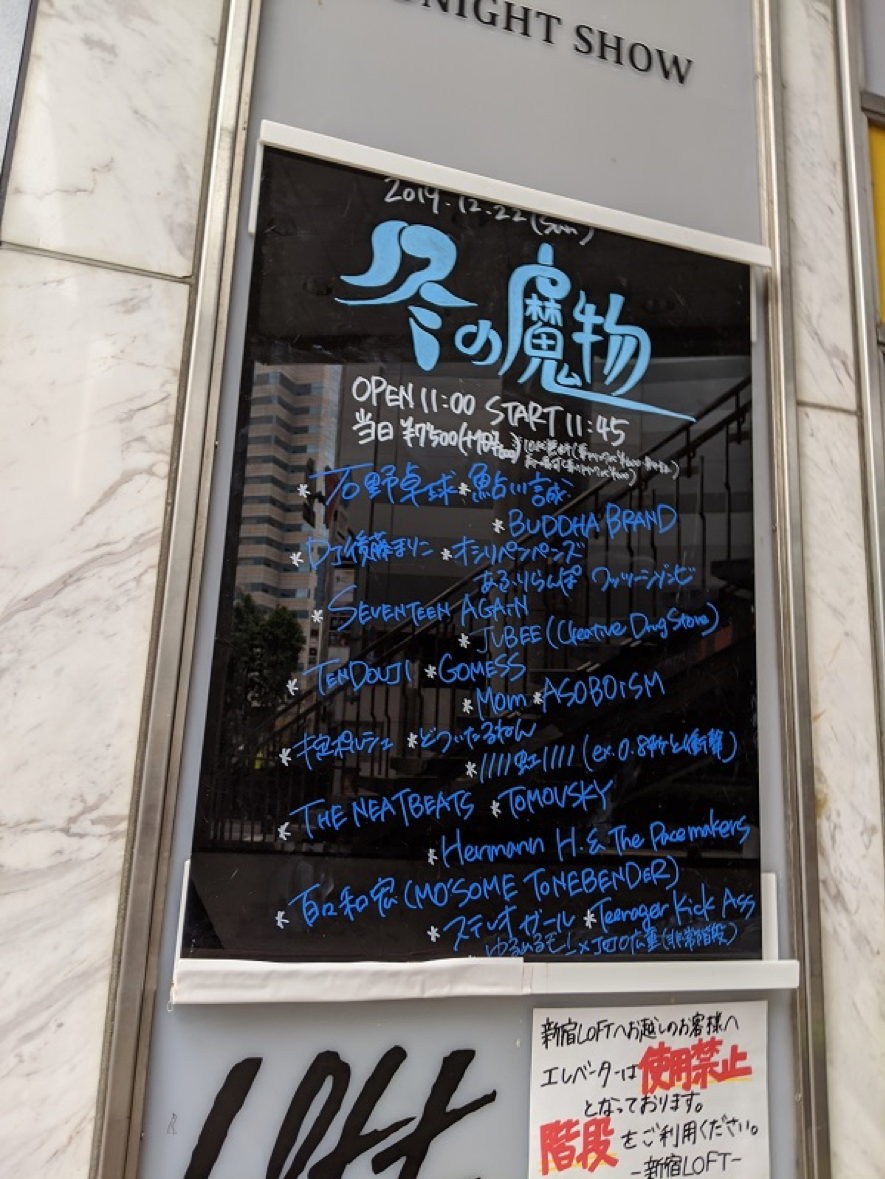 NIGHT SHOW
2019.12.22(Sun)
冬の魔物
OPEN 11:00 START 11:45
当日 ¥7500
*石野卓球 *鮎川誠
*BUDDHA BRAND
*DJ後藤まりこ *オシリペンペンズ
あふりらんぽ ワッツーシゾンビ
*SEVENTEEN AGAiN
*JUBEE (Creative Drug Store)
*TENDOUJI *GOMESS
*Mom *ASOBOiSM
*掟ポルシェ *どついたるねん
*////虹//// (ex.0.8秒と衝撃)
*THE NEATBEATS *TOMOVSKY
*Hermann H. & The Pacemakers
*百々和宏 (MO'SOME TONEBENDER)
*ステレオガール *Teenager Kick Ass
ゆるめるモ!×JOJO広重(非常階段)
新宿LOFTへお越しのお客様へ
エレベーターは使用禁止
となっております。
階段をご利用ください。
-新宿LOFT-
LOFT